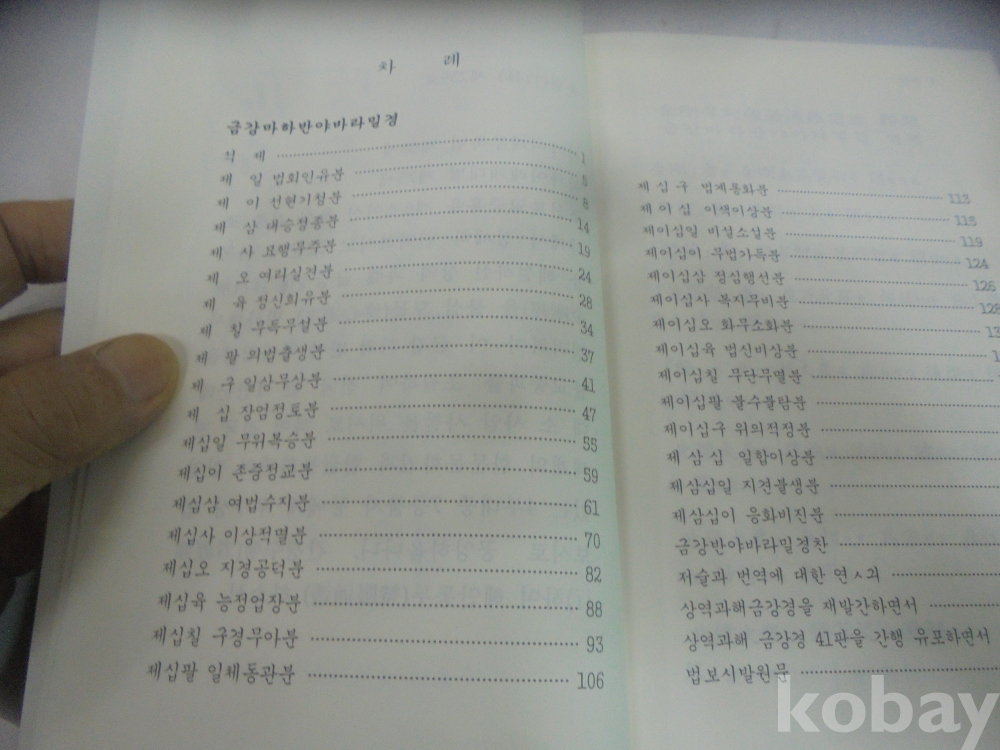 차 례
금강마하반야바라밀경
제 1
제 일 법회인유분 6
제 이 선현기청분 8
제 삼 대승정종분 14
제 사 묘행무주분 19
제 오 여리실견분 24
제 육 정신희유분 28
제 칠 무득무설분 34
제 팔 의법출생분 37
제 구 일상무상분 41
제 십 장엄정토분 47
제십일 무위복승분 55
제십이 존중정교분 59
제십삼 여법수지분 61
제십사 이상적멸분 70
제십오 지경공덕분 82
제십육 능정업장분 88
제십칠 구경무아분 93
제십팔 일체동관분 106
제십구 법계통화분 113
제이십 이색이상분 115
제이십일 비설소설분 119
제이십이 무법가득분 124
제이십삼 정심행선분 126
제이십사 복지무비분 128
제이십오 화무소화분
제이십육 법신비상분
제이십칠 무단무멸분
제이십팔 불수불탐분
제이십구 위의적정분
제삼십 일합이상분
제삼십일 지견불생분
제삼십이 응화비진분
금강반야바라밀경찬
저술과 번역에 대한 연ㅅ긔
상역과해금강경을 재발간하면서
상역과해 금강경 41판을 간행 유포하면서
법보시발원문
kobay